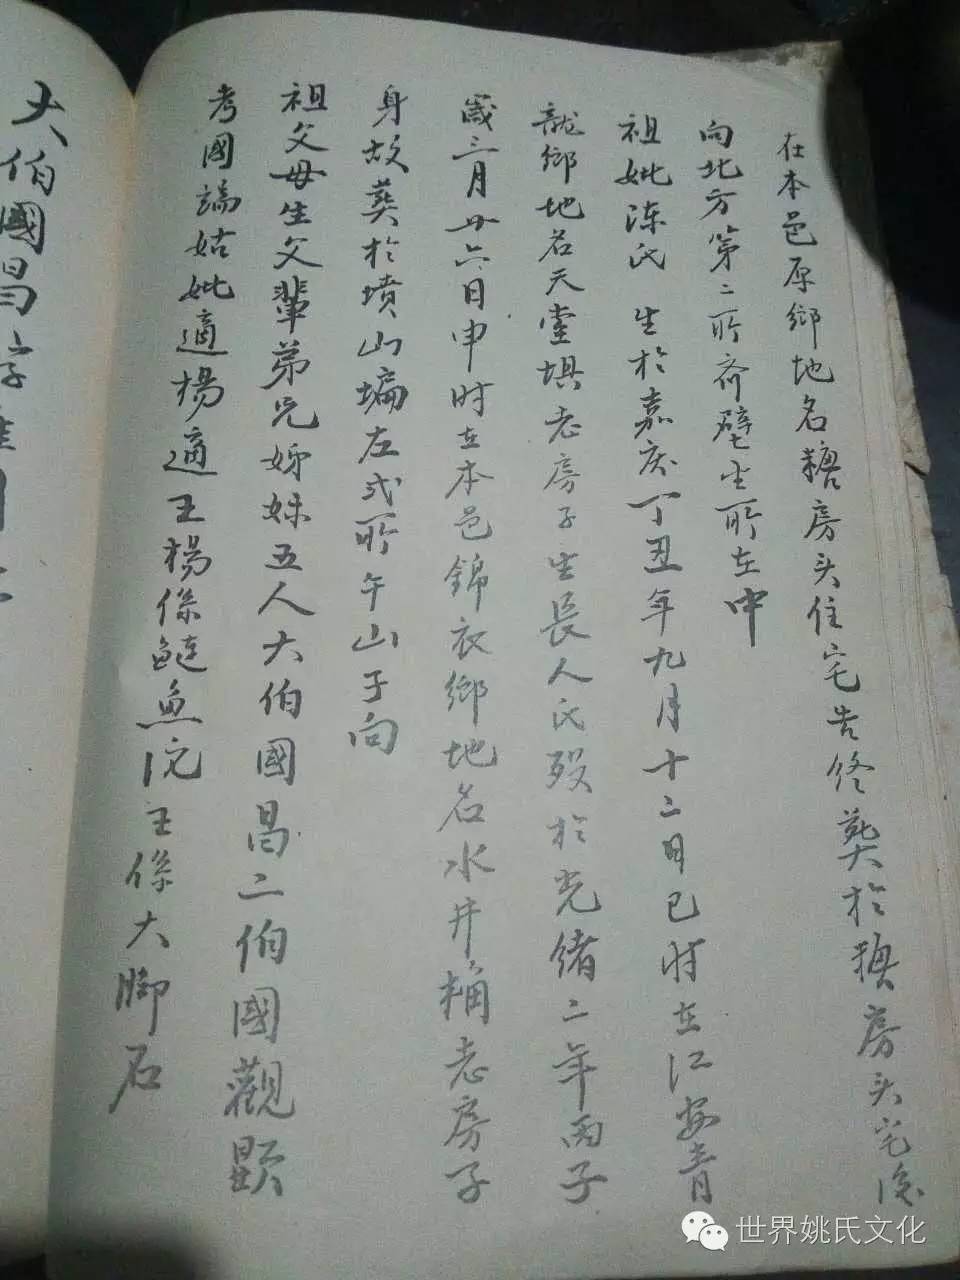 在本邑原鄉地名糖房头住宅告終葬於糖房头宅後
向北方第二所齐壁坐所在中
祖妣陈氏 生於嘉庆丁丑年九月十二日巳时在江安青
龍鄉地名天堂垻老房子生長人氏殁於光绪二年丙子
歲三月廿六日申时在本邑錦衣鄉地名水井老房子
身故葬於墳山左弍所午山子向
祖父母生父輩弟兄姊妹五人大伯國昌二伯國觀顕
考國端姑妣適楊適王楊係鲢魚沱王係大脚石
大伯國昌字
世界姚氏文化